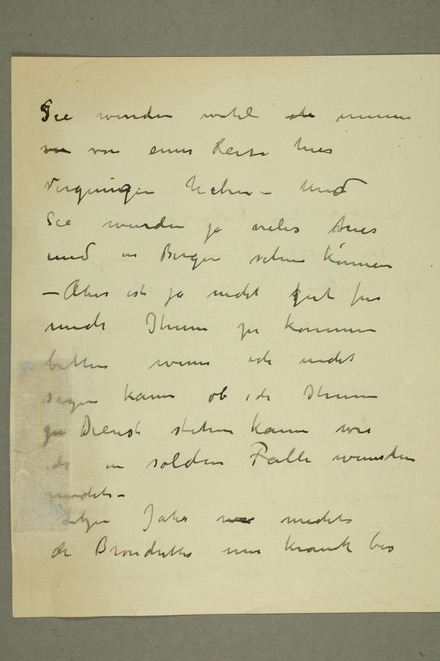 Sie würden wohl immer
von einer Reise hier
Vergnügen haben – Und
Sie würden ja vieles hier
und in Bergen sehen können
– Aber ich ja nicht gut für
mich Ihnen zu kommen
bitten wenn ich nicht
sagen kann ob ich Ihnen
zu Dienst stehen kann wie
ich in solchen Falle wünschen
möchte –
Jahr machte
die Bronchitis mir krank bis